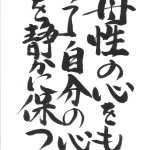 母性の心をも
って自分の心
を静かに保つ